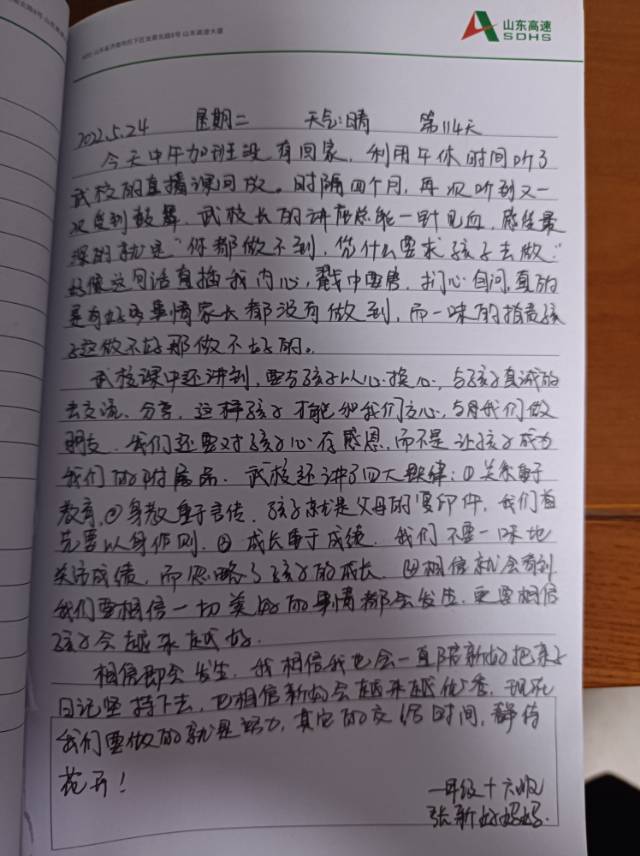 山东高速
SDHS
2022.5.24 星期二 天气:晴 第114天
今天中午加班没有回家，利用午休时间听了
武校的直播课回放。时隔四个月，再次听到又一
次受到鼓舞，武校长的讲座总能一针见血，感触最
深的就是“你都做不到，凭什么要求孩子去做”
好像这句话直插我内心，戳中要害，扪心自问，真的
是有好多事情家长都没有做到，而一味的指责孩
子这做不好那做不好的。
武校课中还讲到，要与孩子以心换心，与孩子真诚的
去交流、分享，这样孩子才能和我们交心，与我们做
朋友，我们还要对孩子心存感恩，而不是让孩子成为
我们的附属品。武校还讲了四大规律：①关系重于
教育，②身教重于言传，孩子就是父母的复印件，我们首
先要以身作则，③成长重于成绩，我们不要一味地
关注成绩，而忽略了孩子的成长，④相信就会看到
我们要相信一切美好的事情都会发生，更要相信
孩子会越来越好。
相信即会发生，我相信我也会一直陪新好把亲子
日记坚持下去，也相信新好会越来越优秀，现在
我们要做的就是努力，其它的交给时间，静待
花开！
一年级十六班
张新好妈妈